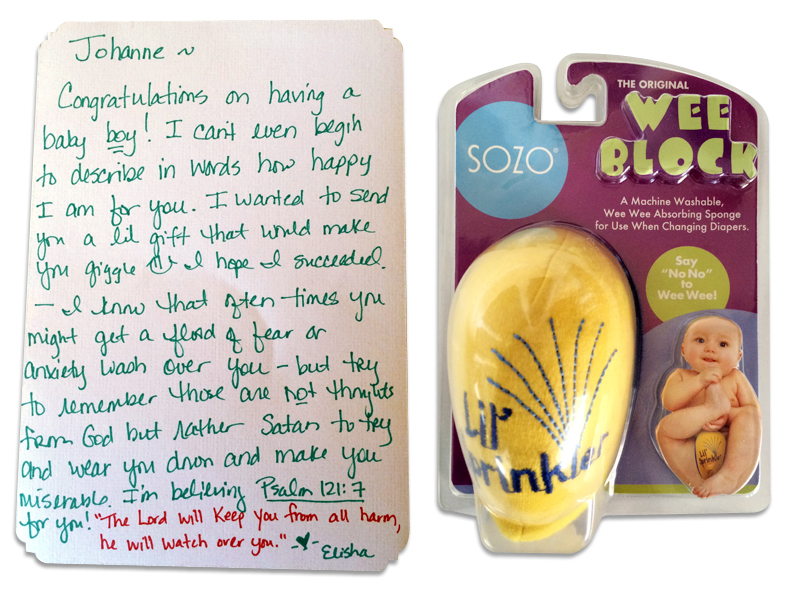 Johanne ~
Congratulations on having a
baby boy! I can't even begin
to describe in words how happy
I am for you. I wanted to send
you a lil gift that would make
you giggle I hope I succeeded.
- I know that often times you
might get a flood of fear or
anxiety wash over you - but try
to remember those are not thoughts
from God but rather Satan to try
and wear you down and make you
miserable. I'm believing Psalm 121:7
for you! "The Lord will keep you from all harm,
he will watch over you." - ♥ - Elisha
THE ORIGINAL
WEE
BLOCK
SOZO®
A Machine Washable,
Wee Wee Absorbing Sponge
for Use When Changing Diapers.
Say
"No No"
to
Wee Wee!
Lil'
Sprinkler
Lil'
Sprinkler